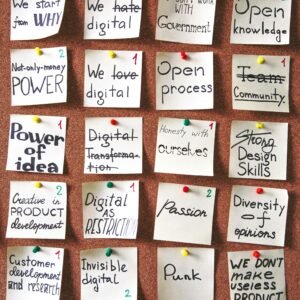 We start
from WHY
We hate
digital
WITH
Government
Open
knowledge
2
Not-only-money
POWER
1
We love
digital
Open
process
1
Team
Community
1
Power
of
idea
1
Digital
Transforma-
tion
1
Honesty with
ourselves
Strong
Design
Skills
2
Creative in
PRODUCT
development
1
Digital
AS
RESTRICTION
Passion
Diversity
of
opinions
1
Customer
development
and research
Invisible
digital
2
Punk
WE DON'T
make
useless
PRODUCT